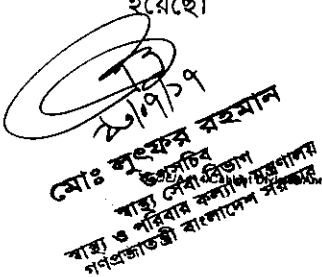 হয়েছে।
মোঃ লুৎফর রহমান
উপসচিব
স্বাস্থ্য সেবা বিভাগ
স্বাস্থ্য ও পরিবার কল্যাণ মন্ত্রণালয়
গণপ্রজাতন্ত্রী বাংলাদেশ সরকার